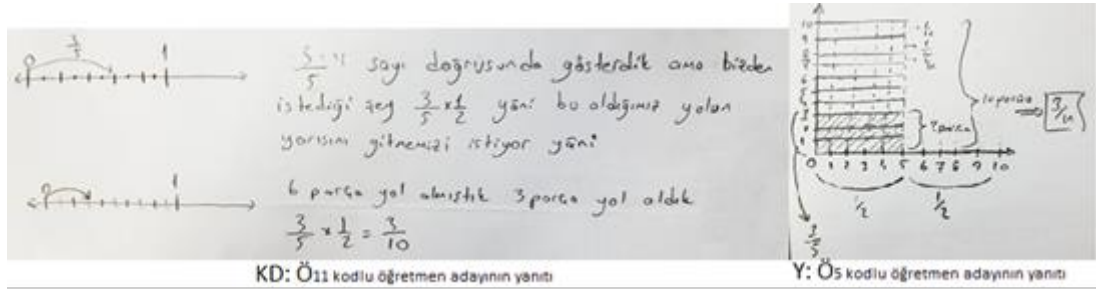 3/5
0 1
3/5 'i sayı doğrusunda gösterdik ama bizden
istediği şey 3/5 x 1/2 yani bu aldığımız yolun
yarısını gitmemizi istiyor yani
0 1
6 parça yol almıştık 3 parça yol aldık
3/5 x 1/2 = 3/10
KD: Ö11 kodlu öğretmen adayının yanıtı
10
9
3
2
1
0 1 2 3 4 5 6 7 8 9 10
1/2 1/2
3/5
10 parça
3/10
Y: Ö5 kodlu öğretmen adayının yanıtı